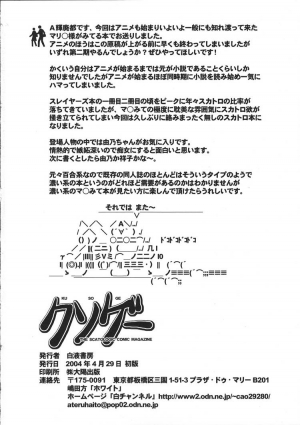 A 輝廃都です、今回はアニメも始まりいよいよ一般にも知れ渡って来た
マリ〇様がみてる本でお送りしました。
アニメのほうはこの原稿が上がる前に早くも終わってしまいましたが
いずれ第二期やるんでしょうか？ぜひやってほしいです！
かくいう自分はアニメが始まるまでは元が小説であることくらいしか
知りませんでしたがアニメが始まるほぼ同時期に小説を読み始め一気に
ハマってしまいました。
スレイヤーズ本の一冊目二冊目の頃をピークに年々スカトロの比率が
落ちてきていましたが、マ〇みての極度に耽美な雰囲気にスカトロ欲が
掻き立てられてしまい今回は久しぶりに絡みまったく無しのスカトロ本に
なりました。
登場人物の中では由乃ちゃんがお気に入りです。
情熱的で嫉妬深いので痴女にすると面白いと思います。
次に書くとしたら由乃か祥子かな〜。
元々百合系なので既存の同人誌のほとんどはそういうタイプのようで
濃い系の本というのがどれほど需要があるのかはわかりませんが
濃い系のマ〇みて本が見たい方に楽しんで頂けたらうれしいです。
それでは また〜
KU SO GE
クソゲー
THE SCATOLOGIC COMIC MAGAZINE
発行者 白液書房
発行日 2004 年 4 月 29 日 初版
印刷所 ㈱大陽出版
連絡先 〒175-0091 東京都板橋区三園 1-51-3 プラザ・ドゥ・マリー B201
嶋田方「ホワイト」
ホームページ「白チャンネル」http://www2.odn.ne.jp/~cao29280/
ateruhaito@pop02.odn.ne.jp